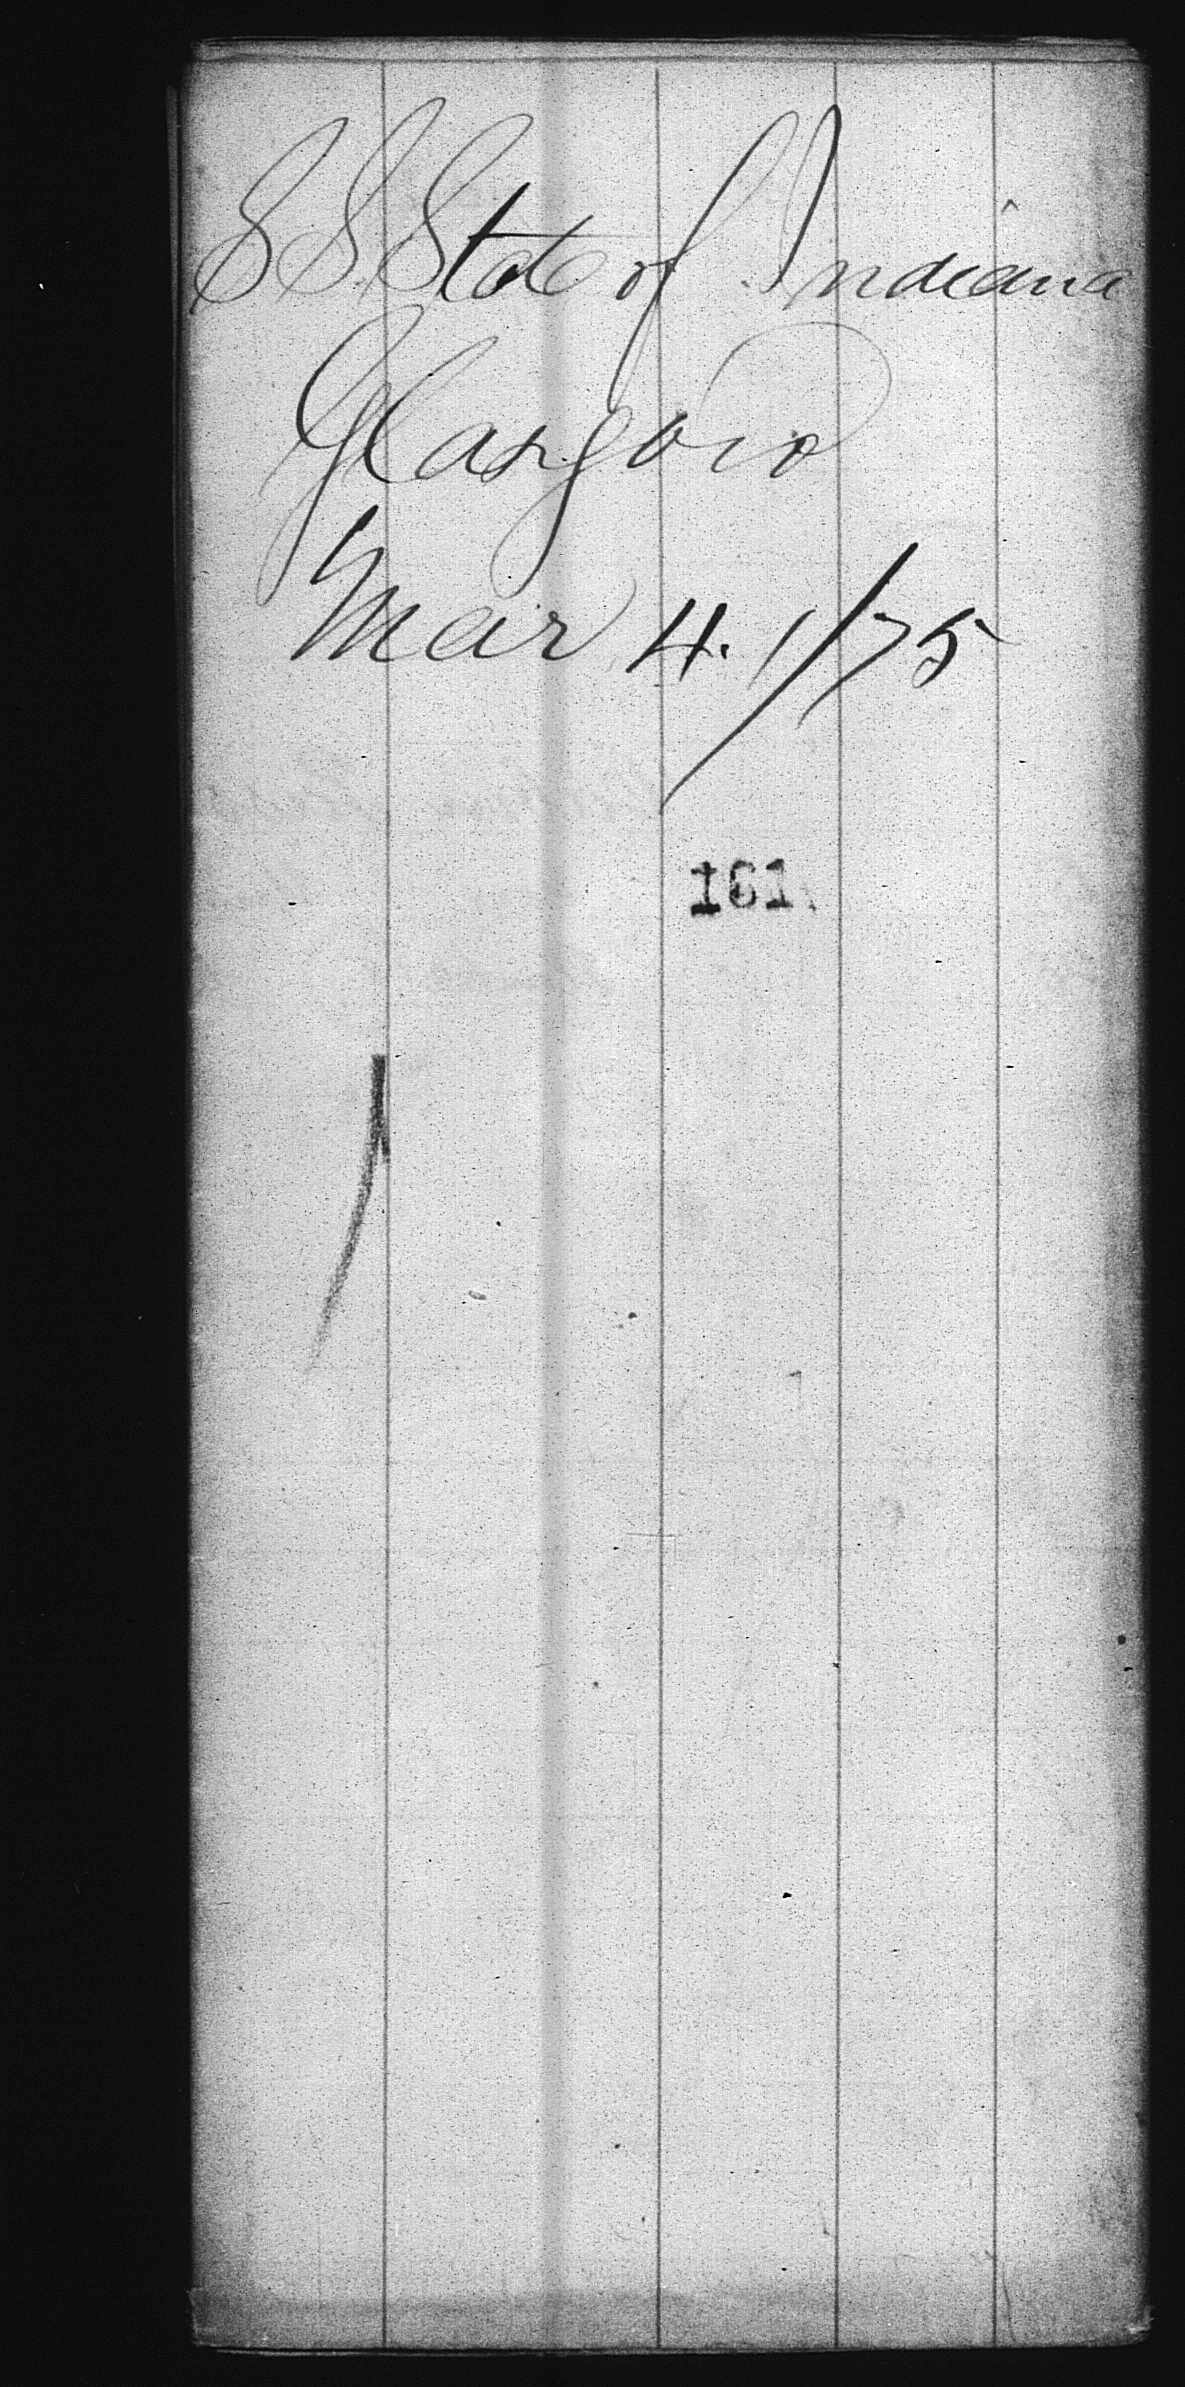 SS State of Indiana
Glasgow
Mar 4. 1/75
161